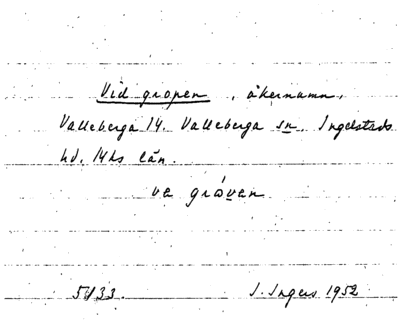 Vid gropen, åkernamn,
Valleberga 14. Valleberga sn. Ingelstads
hd. Mhs län.
ve gråven
5433. I. Ingers 1952